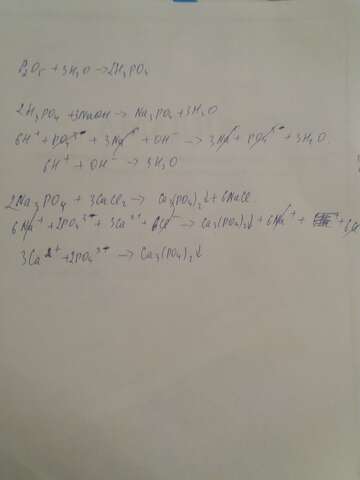 P₂O₅ + 3H₂O → 2H₃PO₄
2H₃PO₄ + 3NaOH → Na₃PO₄ + 3H₂O
6H⁺ + PO₄³⁻ + 3Na⁺ + OH⁻ → 3Na⁺ + PO₄³⁻ + 3H₂O
6H⁺ + OH⁻ → 3H₂O
2Na₃PO₄ + 3CaCl₂ → Ca₃(PO₄)₂↓ + 6NaCl
6Na⁺ + 2PO₄³⁻ + 3Ca²⁺ + 6Cl⁻ → Ca₃(PO₄)₂↓ + 6Na⁺ + + 6Cl
3Ca²⁺ + 2PO₄³⁻ → Ca₃(PO₄)₂↓